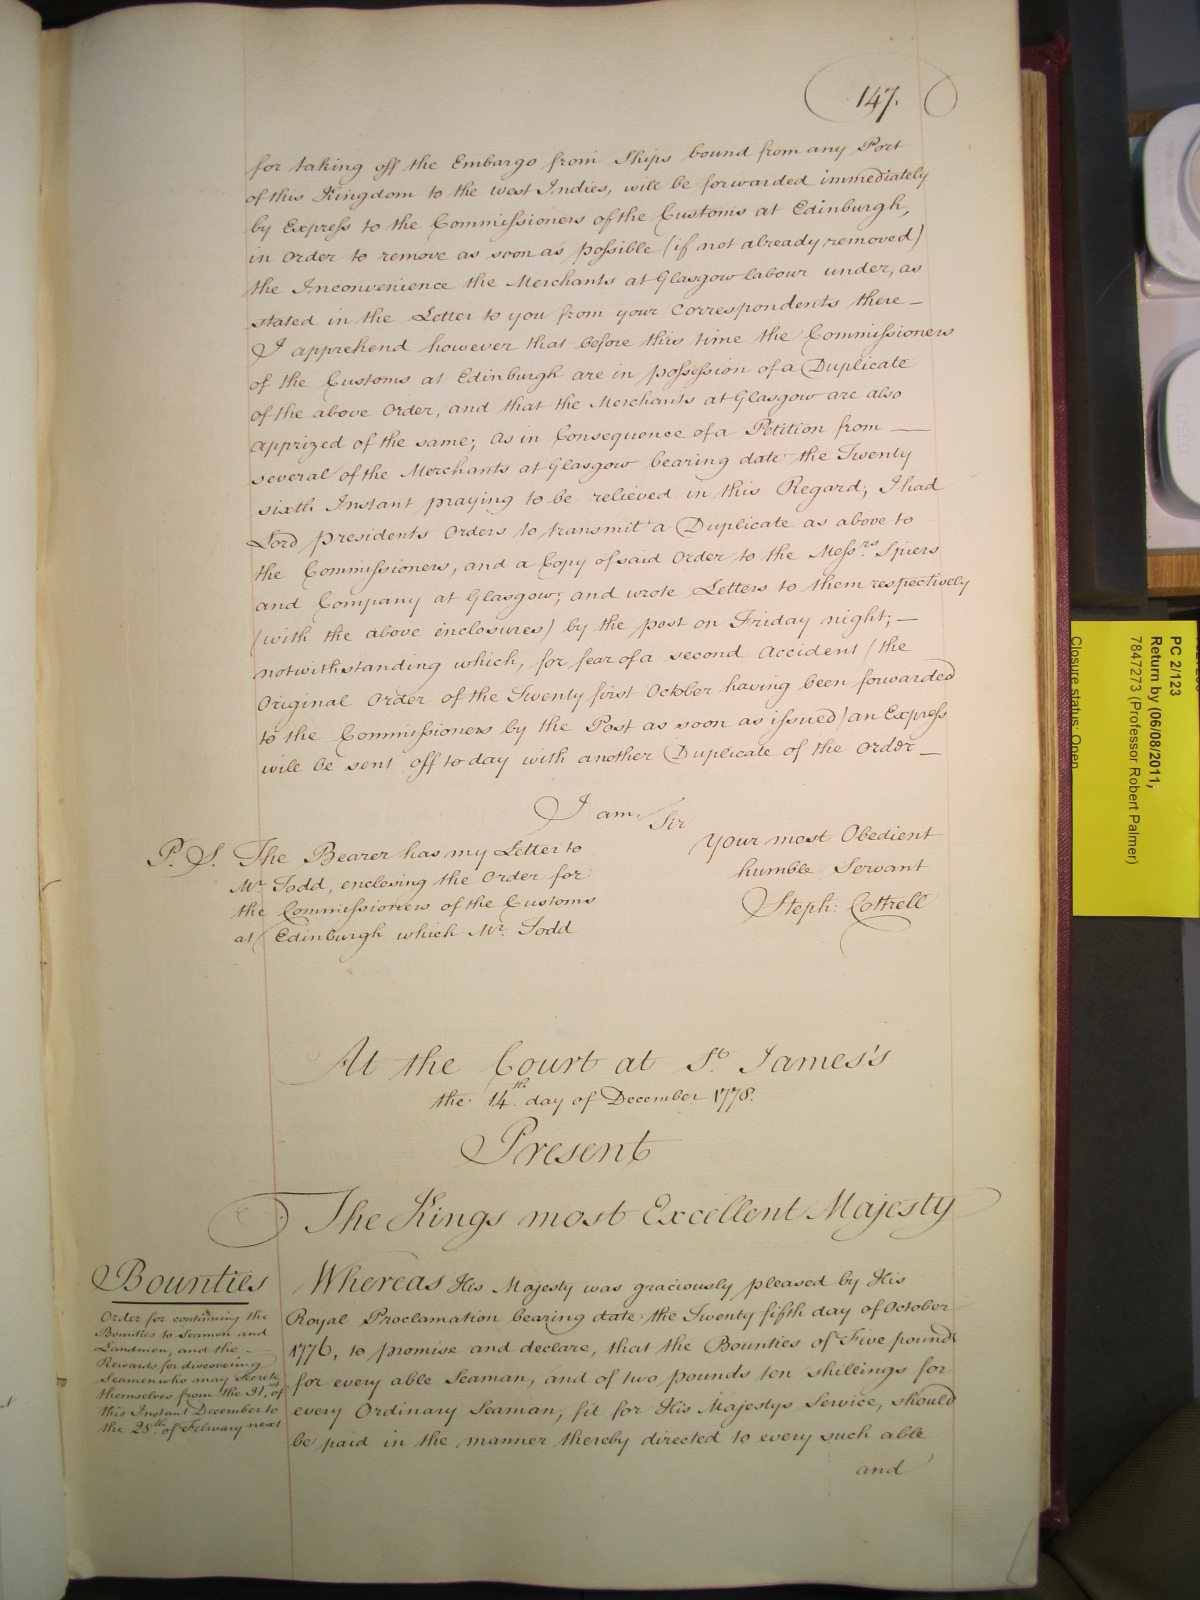 147.
for taking off the Embargo from Ships bound from any Port
of this Kingdom to the West Indies, will be forwarded immediately
by Express to the Commissioners of the Customs at Edinburgh,
in Order to remove as soon as possible (if not already removed)
the Inconvenience the Merchants at Glasgow labour under, as
stated in the Letter to you from your Correspondents there —
I apprehend however that before this time the Commissioners
of the Customs at Edinburgh are in possession of a Duplicate
of the above Order, and that the Merchants at Glasgow are also
apprized of the same; as in Consequence of a Petition from —
several of the Merchants at Glasgow bearing date the Twenty
sixth Instant praying to be relieved in this Regard; I had
Lord presidents Orders to transmit a Duplicate as above to
the Commissioners, and a Copy of said Order to the Messrs. Spiers
and Company at Glasgow; and wrote Letters to them respectively
(with the above enclosures) by the post on Friday night; —
notwithstanding which, for fear of a second Accident (the
Original Order of the Twenty first October having been forwarded
to the Commissioners by the Post as soon as issued) an Express
will be sent off to day with another Duplicate of the Order —
I am, Sir
Your most Obedient
humble Servant
Steph: Cottrell
P.S. The Bearer has my Letter to
Mr. Todd, enclosing the Order for
the Commissioners of the Customs
at Edinburgh which Mr. Todd
At the Court at St. James's
the 14th. day of December 1778.
Present
The Kings most Excellent Majesty
Bounties
Order for continuing the
Bounties to Seamen and
Landmen, and the —
Rewards for discovering
Seamen who may Secrete
themselves from the 31st. of
this Instant December to
the 28th. of February next
Whereas His Majesty was graciously pleased by His
Royal Proclamation bearing date the Twenty fifth day of October
1776, to promise and declare, that the Bounties of Five pounds
for every able Seaman, and of two pounds ten shillings for
every Ordinary Seaman, fit for His Majestys Service, should
be paid in the manner thereby directed to every such able
and
PC 2/123
Return by (06/08/2011;
7847273 (Professor Robert Palmer)
Closure status: Open